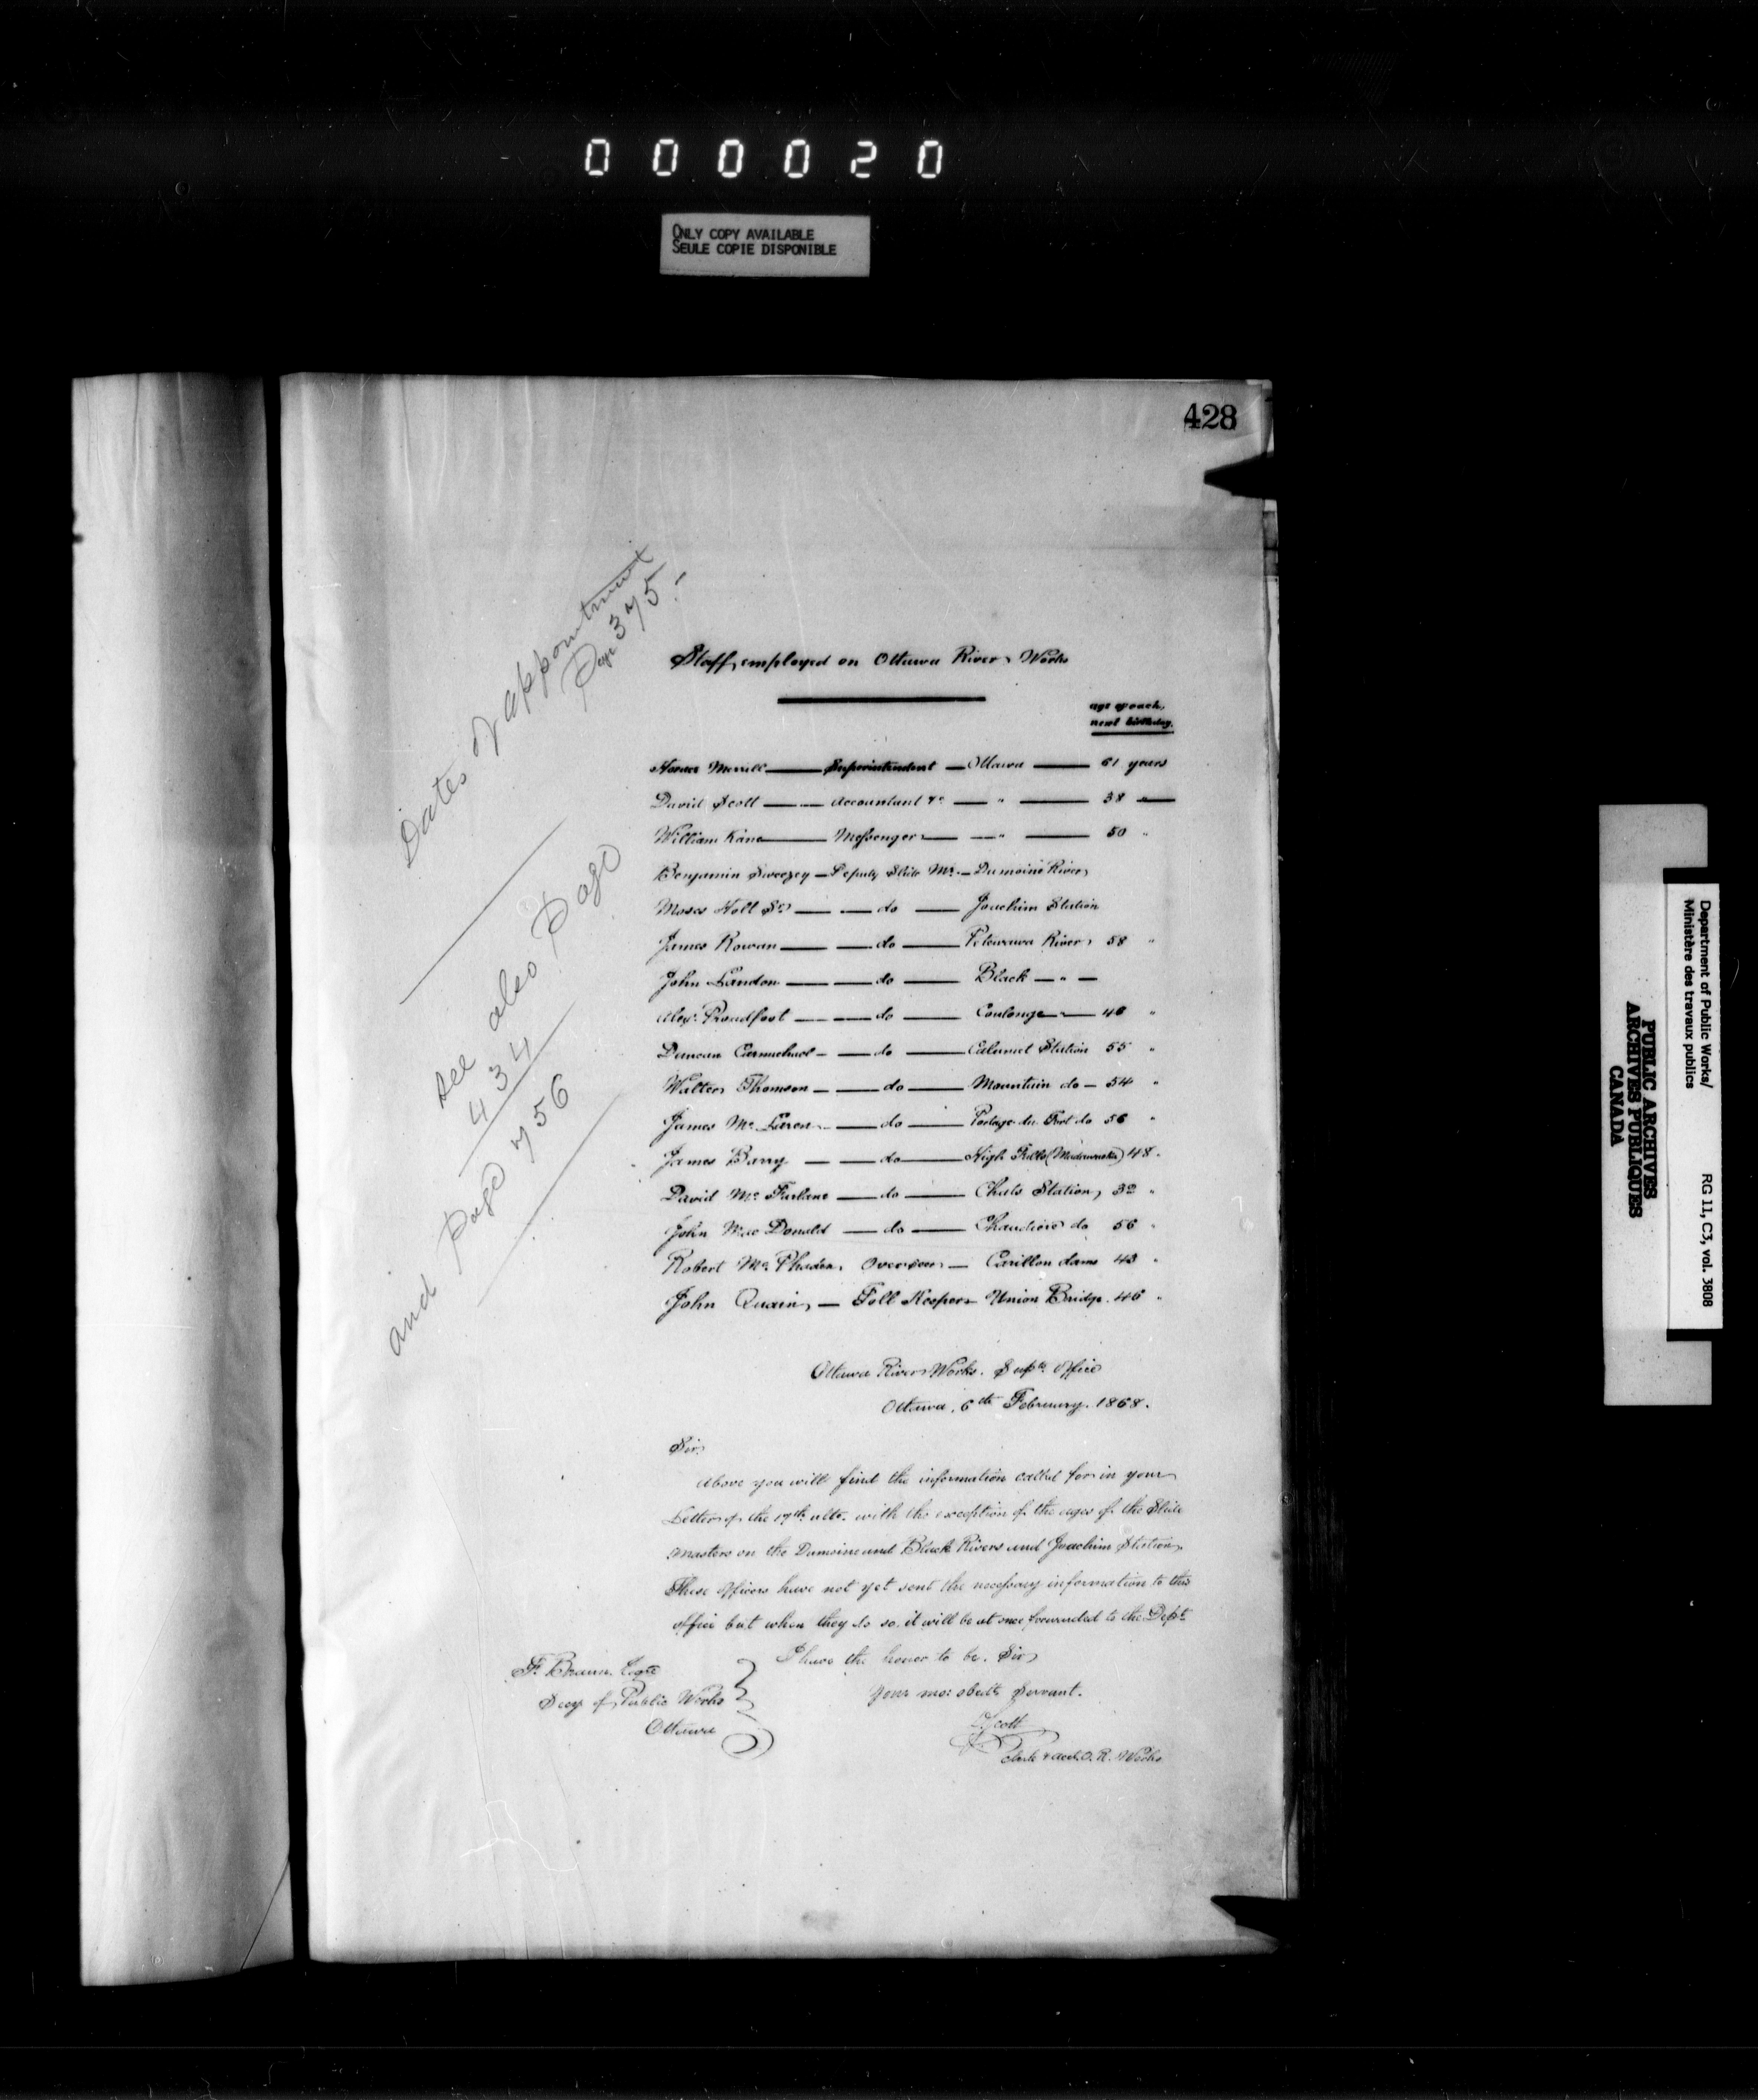 000020
ONLY COPY AVAILABLE
SEULE COPIE DISPONIBLE
428
Dates of appointment
Page 375.
See also Page
434
and Page 756
Staff employed on Ottawa River Works
age of each
next birthday.
Horace Merrill — Superintendent — Ottawa — 61 years
David Scott — Accountant &c — " — 38 "
William Kane — Messenger — " — 50 "
Benjamin Sweezey — Deputy Slide Mr. — Dumoine River
Moses Holt Sr — do — Joachim Station
James Rowan — do — Petewawa River 58 "
John Landon — do — Black — " —
Alexr. Proudfoot — do — Coulonge — 46 "
Duncan Carmichael — do — Calumet Station 55 "
Walter Thomson — do — Mountain do — 54 "
James Mc Laren — do — Portage du Fort do 56 "
James Barry — do — High Falls (Madawaska) 48 "
David Mc Farlane — do — Chats Station, 32 "
John Mac Donald — do — Chaudiere do 56 "
Robert Mc Phaden, Overseer — Carillon dams 43 "
John Quain, — Toll Keeper — Union Bridge. 46 "
Ottawa River Works. Supts. Office
Ottawa, 6th February. 1868.
Sir,
Above you will find the information called for in your
Letter of the 17th ulto. with the exception of the ages of the Slide
masters on the Dumoine and Black Rivers and Joachim Station.
These officers have not yet sent the necessary information to this
office but when they do so, it will be at once forwarded to the Dept.
I have the honor to be. Sir,
Your mo: obedt. Servant.
D. Scott
Clerk & acct. O. R. Works
F. Braun. Esqre
Secy of Public Works
Ottawa
PUBLIC ARCHIVES
ARCHIVES PUBLIQUES
CANADA
Department of Public Works/
Ministère des travaux publics
RG 11, C3, vol. 3808